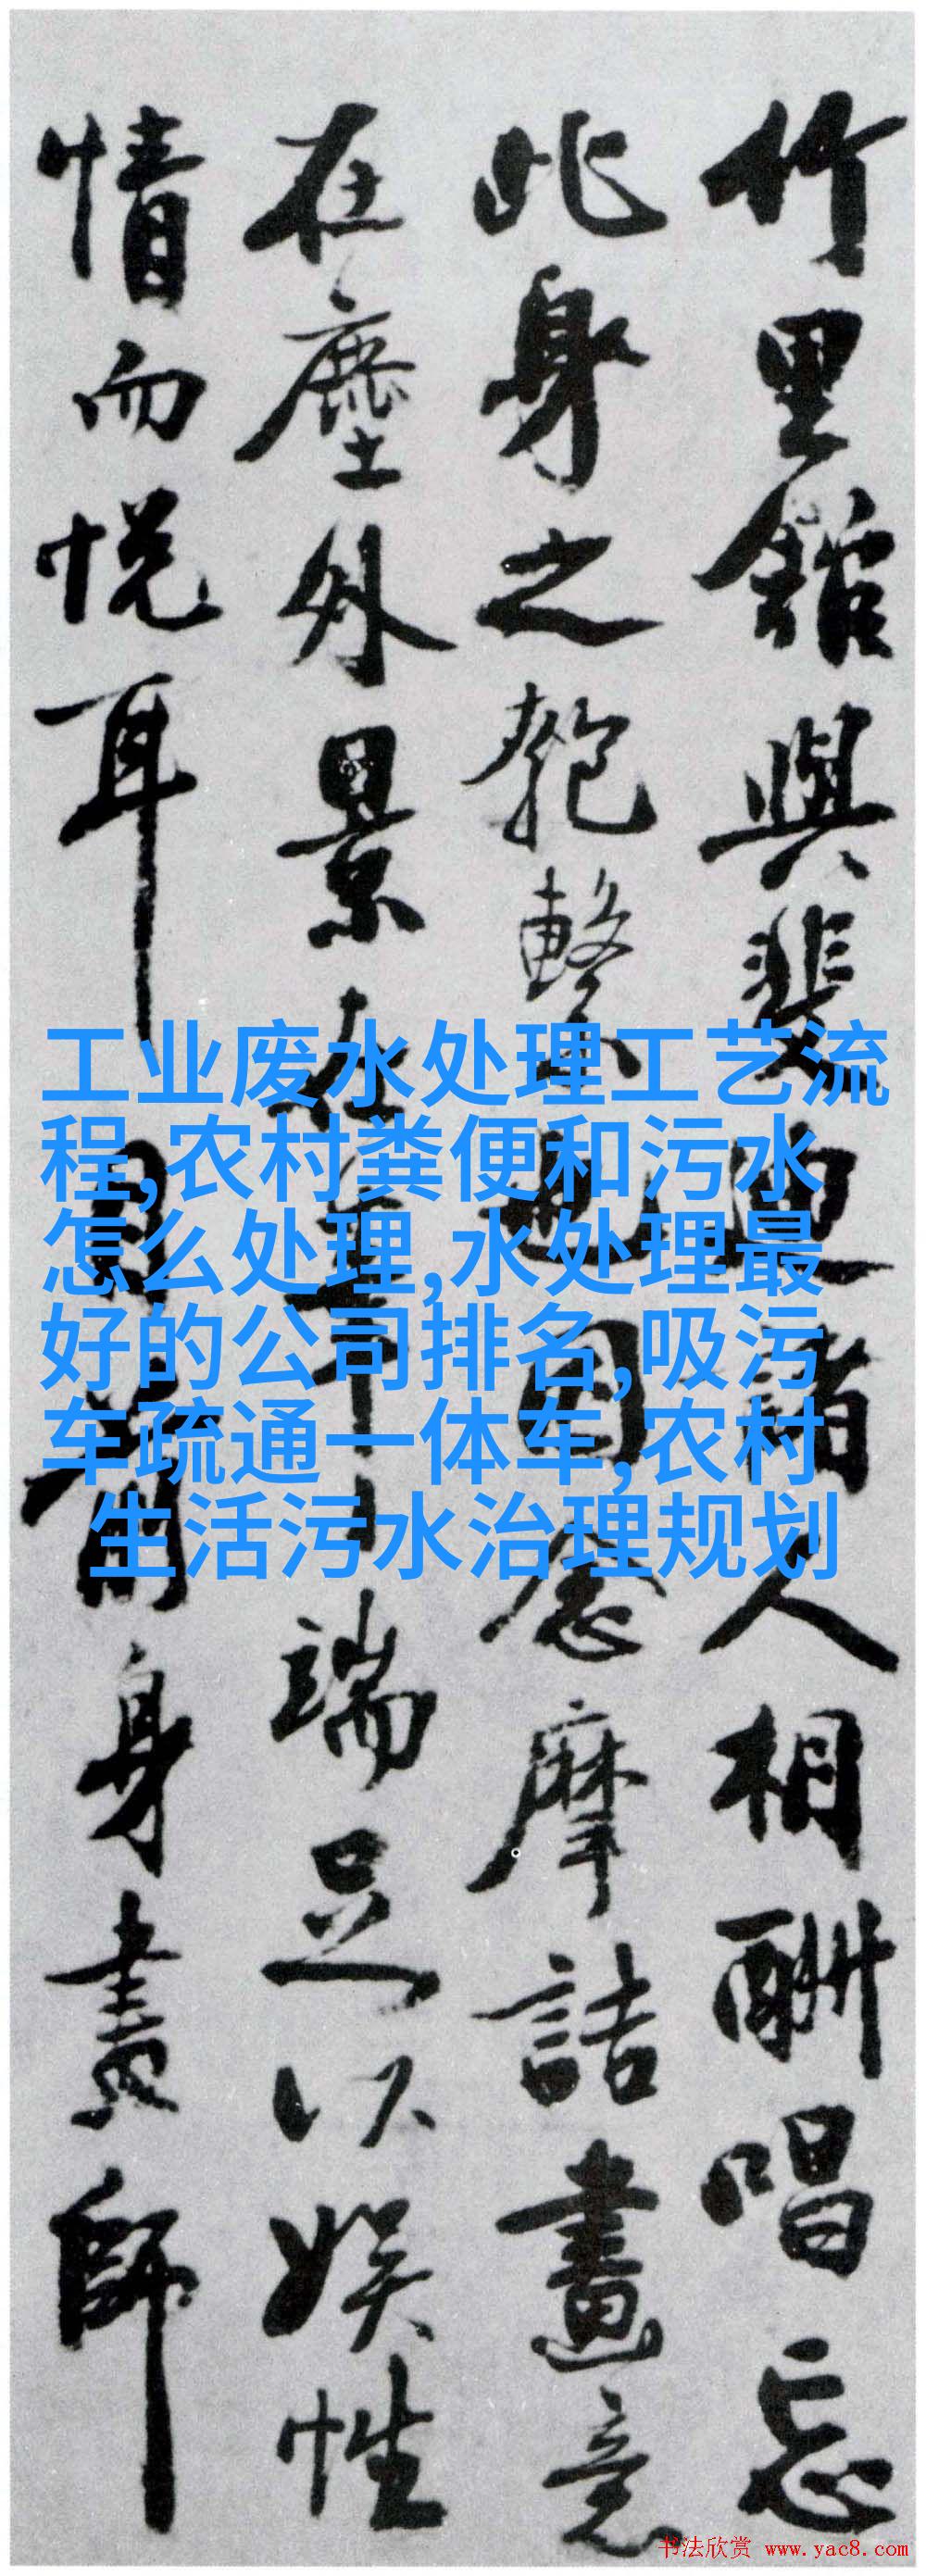 竹里館與裴迪諸人相酬唱忘
此身之匏繫也因念摩詰畫意
在塵外景在筆端足以娱性
情而悦耳目前身畫師
工业废水处理工艺流
程,农村粪便和污水
怎么处理,水处理最
好的公司排名,吸污
车疏通一体车,农村
生活污水治理规划
书法欣赏 www.yac8.com